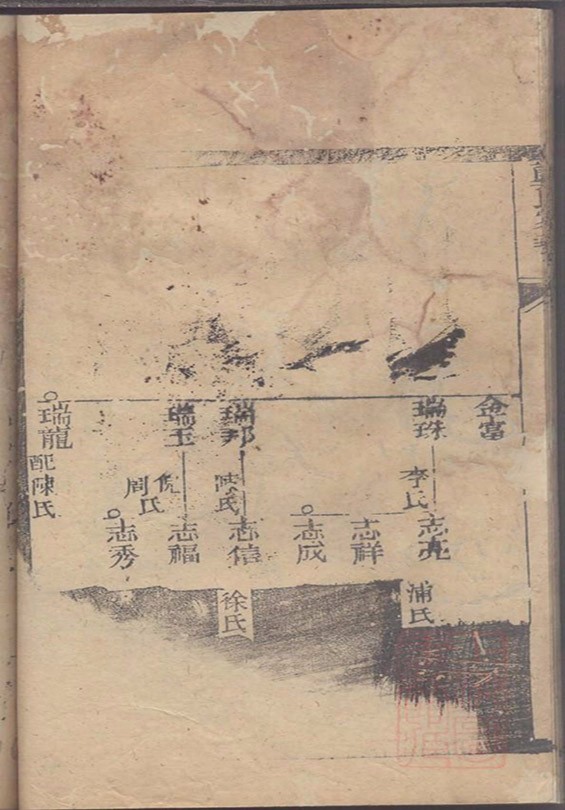 金富
瑞珠
李氏
志亮
浦氏
志祥
志成
瑞邦
陳氏
志信
徐氏
瑞玉
倪氏
周氏
志福
志秀
瑞龍
配陳氏